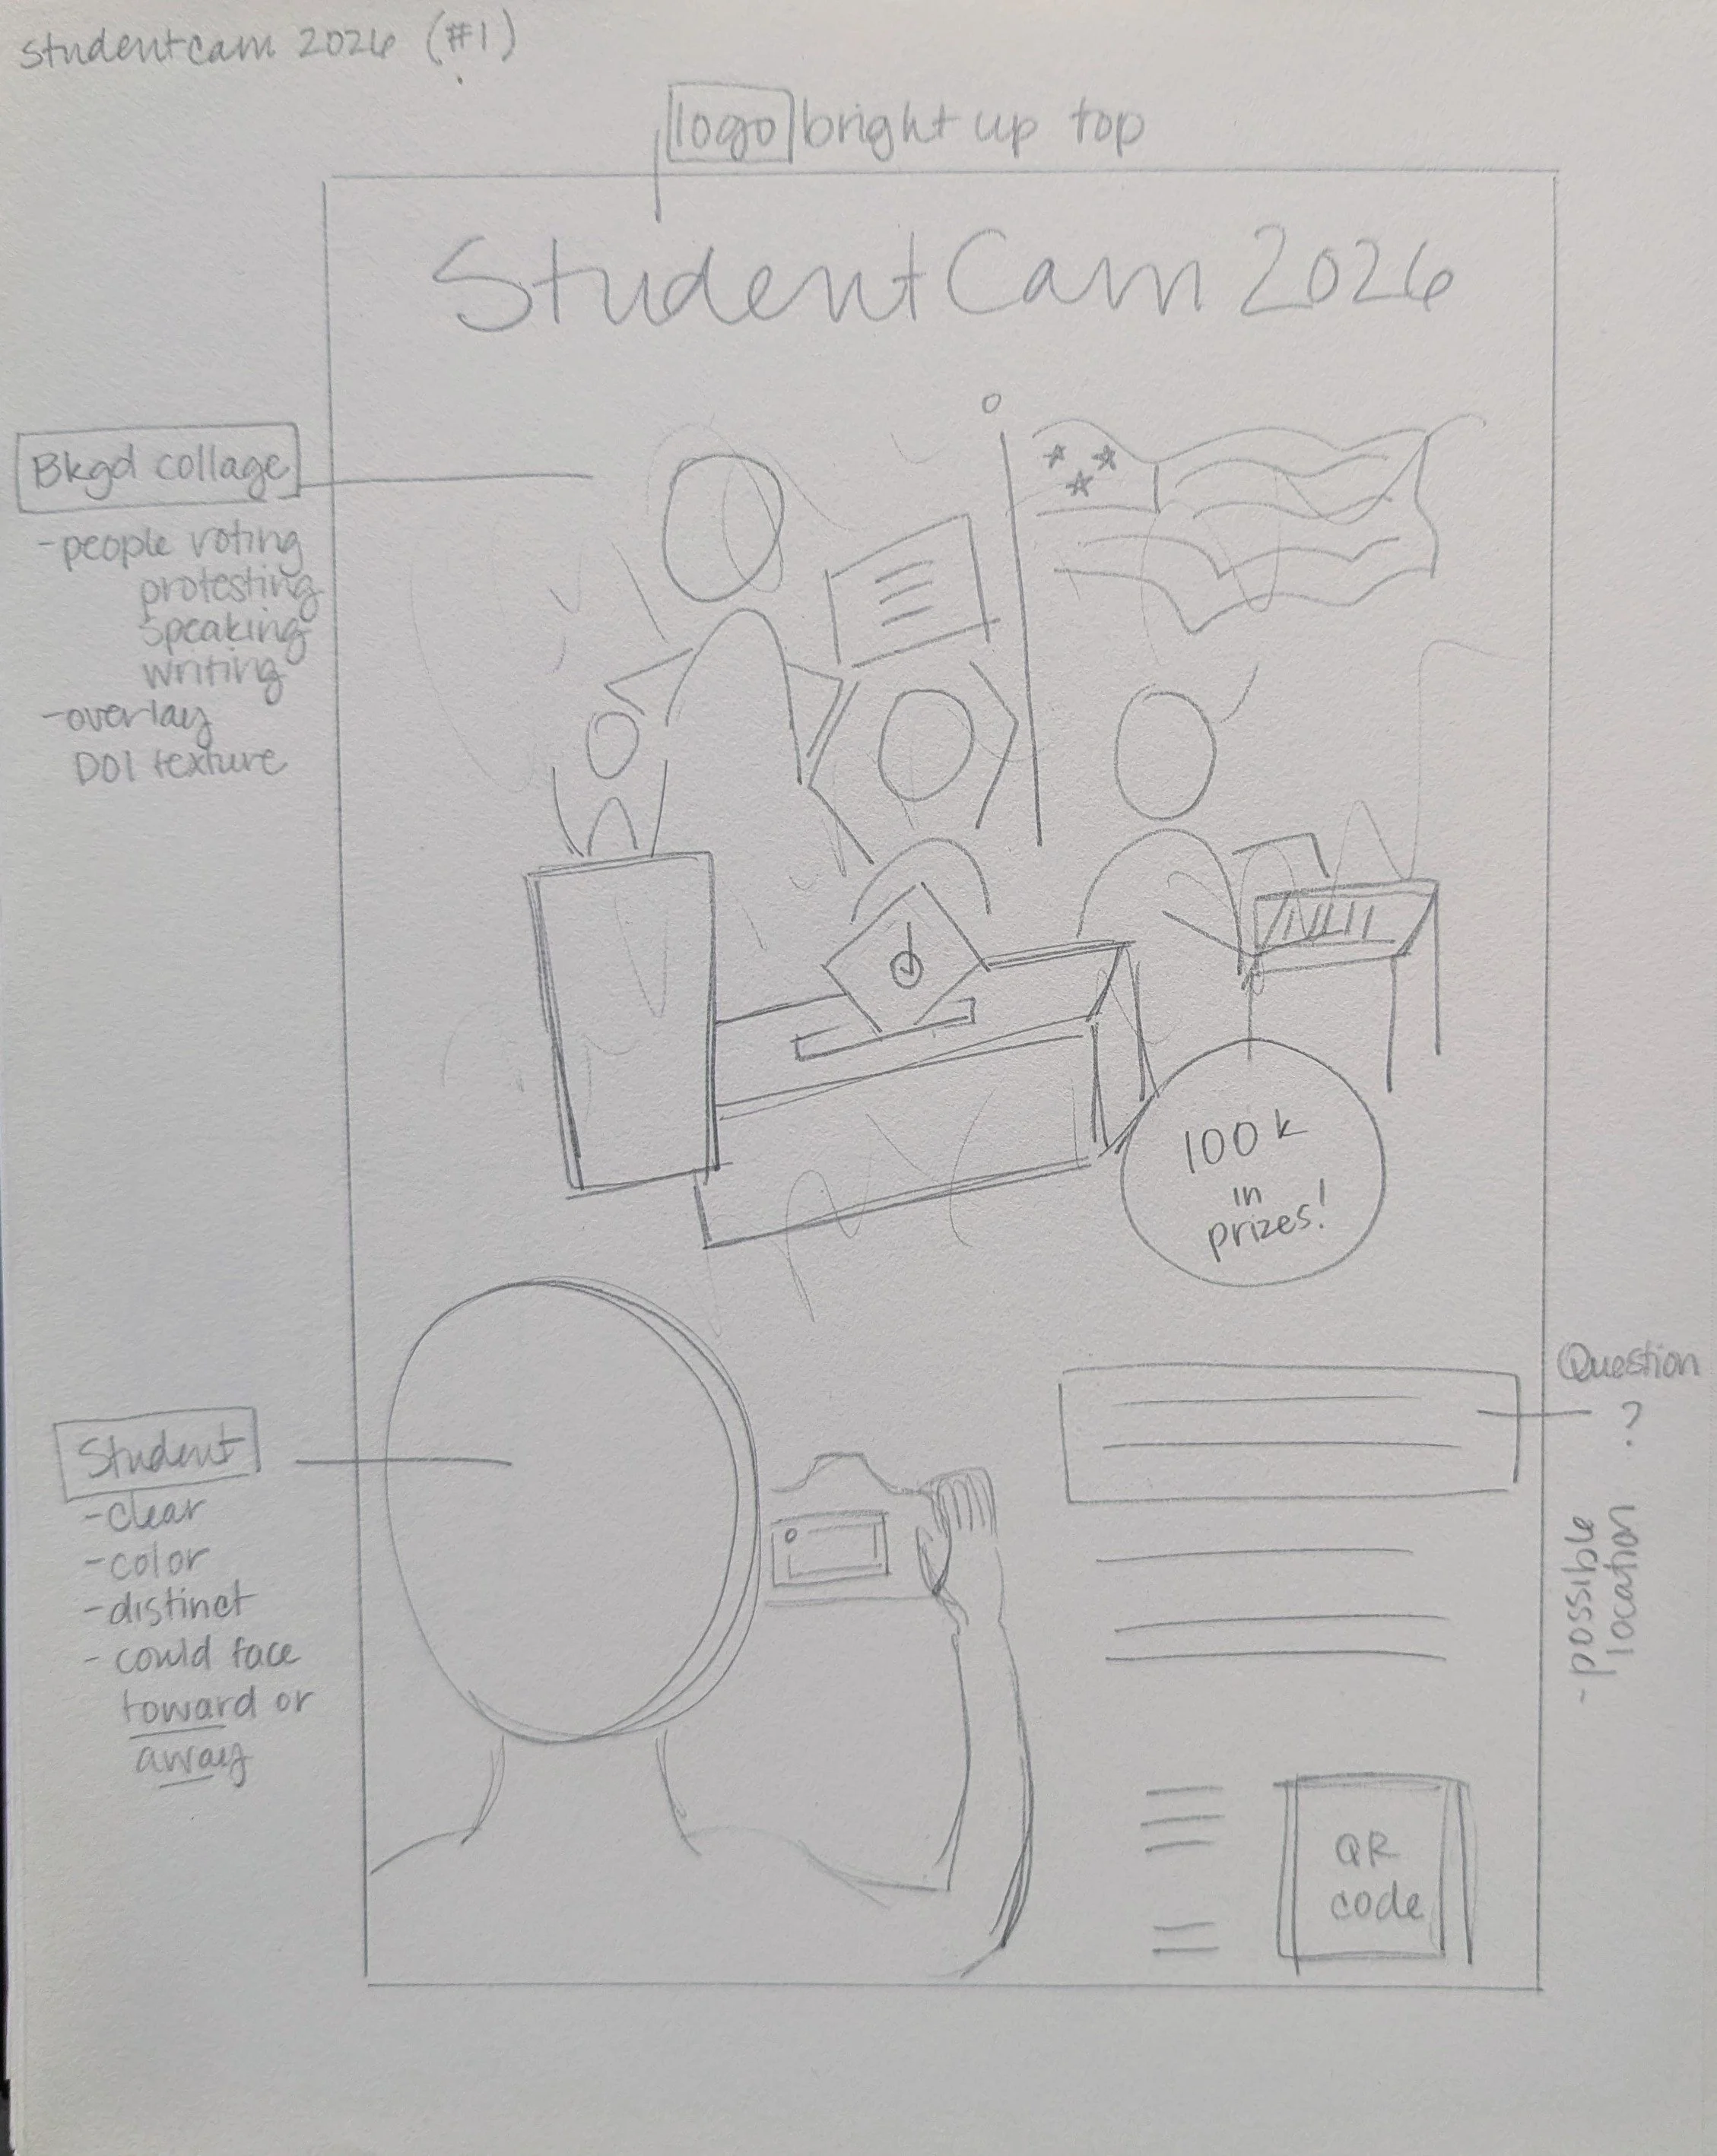 studentcam 2026 (#1)
logo bright up top
StudentCam 2026
Bkgd collage
-people voting
protesting
speaking
writing
-overlay
DOI texture
100k
in
prizes!
Question
?
-possible
location
Student
-clear
-color
-distinct
- could face
toward or
away
QR
code